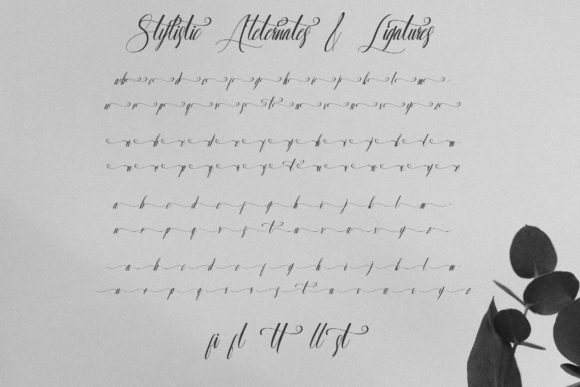 Stylistic Alternates & Ligatures
a b c d e f g h i j k l m
n o p q r s t u v w x y z
a b c d e f g h i j k l m
n o p q r s t u v w x y z
a b c d e f g h i j k l m
n o p q r s t u v w x y z
a b c d e f g h i j k l m
n o p q r s t u v w x y z
fi fl tt ll st